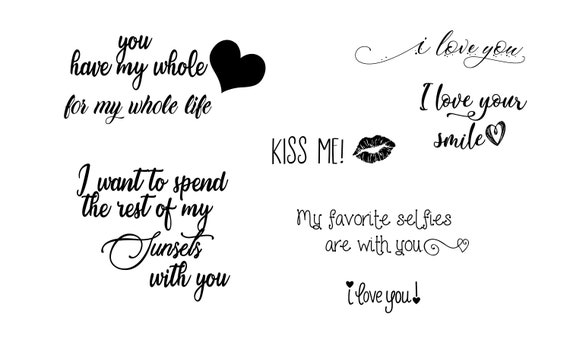 you
have my whole
for my whole life
I want to spend
the rest of my
Sunsets
with you
i love you
I love your
smile
KISS ME!
My favorite selfies
are with you
i love you!